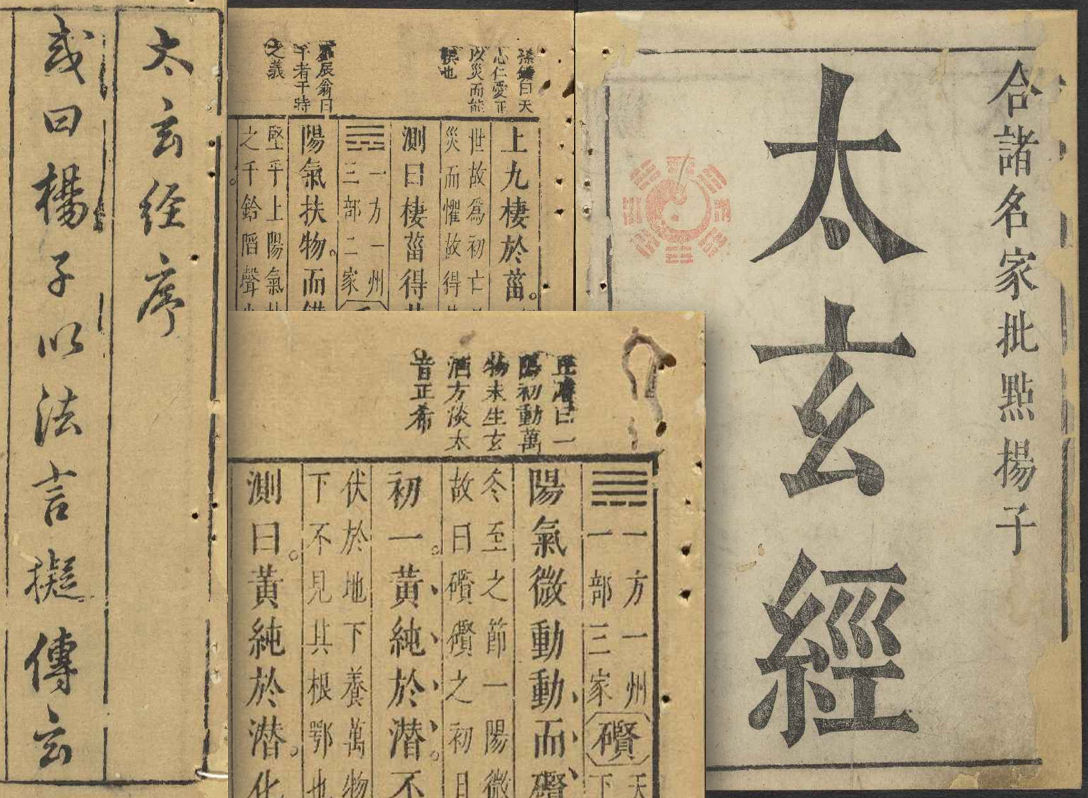 合諸名家批點揚子
太玄經
孫鑛曰天
心仁愛正
以災而能
懼也
辰翁曰
干者干時
之義
上九棲於菑。
世故爲初亡
災而懼故得
測曰棲菑得其
一方一州
三部二家
陽氣扶物。而
堅乎上陽氣
之干鉿䧟聲
丘濬曰一
陽初動萬
物未生玄
酒方淡太
音正希
一方一州 天
一部三家 礥 下
陽氣微動動而礥
冬至之節一陽微
故曰礥礥之初日
初一。黃純於潛。不
伏於地下養萬物
下不見其根鄂也
測曰。黃純於潛。化
太玄經序
或曰楊子以法言擬傳玄